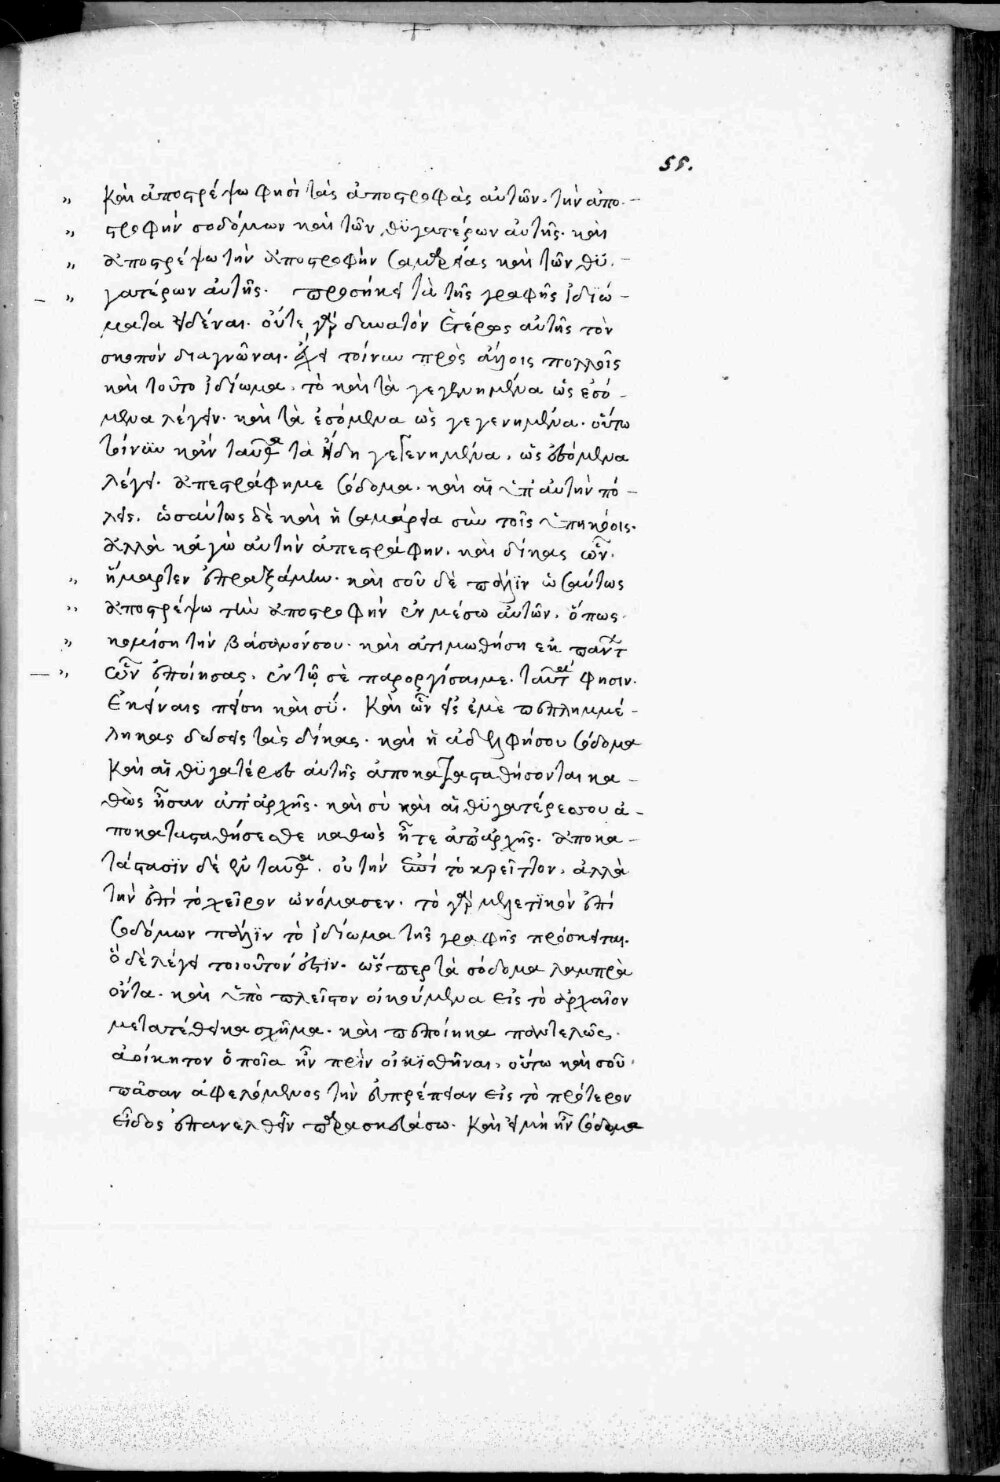 55.
„ Καὶ ἀποστρέψω φησὶ τὰς ἀποστροφὰς αὐτῶν. τὴν ἀπο-
„ στροφὴν σοδόμων καὶ τῶν θυγατέρων αὐτῆς. καὶ
„ ἀποστρέψω τὴν ἀποστροφὴν σαμαρείας καὶ τῶν θυ-
„ γατέρων αὐτῆς. προσήκει τὰ τῆς γραφῆς ἰδιώ-
ματα εἰδέναι. οὔτε γὰρ δυνατὸν ἑτέρως αὐτῆς τὸν
σκοπὸν διαγνῶναι. ἔχει τοίνυν πρὸς ἄλλοις πολλοῖς
καὶ τοῦτο ἰδίωμα. τὸ καὶ τὰ γεγενημένα ὡς ἐσό-
μενα λέγειν. καὶ τὰ ἐσόμενα ὡς γεγενημένα. οὕτω
τοίνυν κἂν ταῦθα τὰ ἤδη γεγενημένα, ὡς ἐσόμενα
λέγει. ἀπεστράφη με σόδομα. καὶ αἱ ὑπ' αὐτὴν πό-
λεις. ὡσαύτως δὲ καὶ ἡ σαμάρεια σὺν τοῖς ὑπηκόοις.
ἀλλὰ κἀγὼ αὐτὴν ἀπεστράφην. καὶ δίκας ὧν
„ ἥμαρτεν ἐπραξάμην. καὶ σοῦ δὲ πάλιν ὡσαύτως
„ ἀποστρέψω τὴν ἀποστροφὴν ἐν μέσω αὐτῶν. ὅπως
„ κομίση τὴν βάσανόν σου. καὶ ἀτιμωθήση ἐκ πάντ
„ ὧν ἐποίησας. ἐν τῷ σὲ παροργίσαι με. ταῦτά φησιν.
Ἐκείναις πείση καὶ σύ. Καὶ ὧν εἰς ἐμὲ πεπλημμέ-
ληκας δώσεις τὰς δίκας. καὶ ἡ ἀδελφή σου σόδομα
Καὶ αἱ θυγατέρες αὐτῆς ἀποκατασταθήσονται κα-
θὼς ἦσαν ἀπ' ἀρχῆς. καὶ σὺ καὶ αἱ θυγατέρες σου ἀ-
ποκατασταθήσεσθε καθὼς ἦτε ἀπ' ἀρχῆς. ἀποκα-
τάστασιν δὲ ἐνταῦθα. οὐ τὴν ἐπὶ τὸ κρεῖττον, ἀλλὰ
τὴν ἐπὶ τὸ χεῖρον ὠνόμασεν. τὸ γὰρ μελετικὸν ἐπὶ
σοδόμων πάλιν τὸ ἰδίωμα τῆς γραφῆς πρόσκειται.
ὃ δὲ λέγει τοιοῦτον ἐστιν. ὥς περ τὰ σόδομα λαμπρὰ
ὄντα. καὶ ὑπὸ πλείστον οἰκούμενα εἰς τὸ ἀρχαῖον
μετατέθεικα σχῆμα. καὶ πεποίηκα παντελῶς
ἀοίκητον ὁποῖα ἦν πρὶν οἰκισθῆναι, οὕτω καὶ σοῦ
πᾶσαν ἀφελόμενος τὴν εὐπρέπειαν εἰς τὸ πρότερον
εἶδος ἐπανελθεῖν παρασκευάσω. Καὶ εἰ μὴ ἦν σόδομα